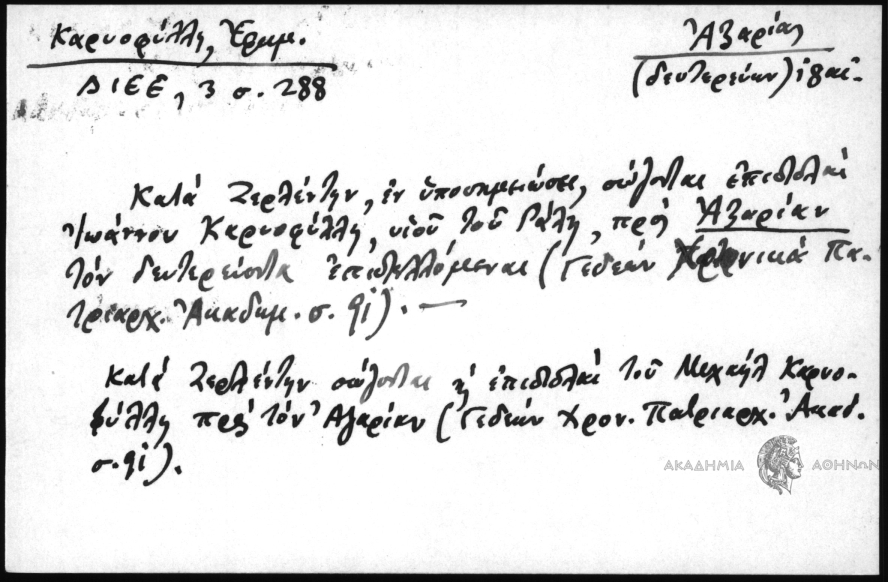 Καρυοφύλλη, Ἐρωμ.
ΔΙΕΕ, 3 σ. 288
Ἀζαρίας
(δευτερεύων)
Κατά Ζερλέντην, ἐν ὑποσημειώσει, σώζονται ἐπιστολαί
Ἰωάννου Καρυοφύλλη, υἱοῦ τοῦ Ράλη, πρός Ἀζαρίαν
τόν δευτερεύοντα ἐπιστελλόμεναι (Γεδεών Χρονικά Πα-
τριαρχ. Ἀκαδημ. σ. 91). —
Κατά Ζερλέντην σώζονται ἤ ἐπιστολαί τοῦ Μιχαήλ Καρυο-
φύλλη πρός τόν Ἀζαρίαν (Γεδεών Χρον. Πατριαρχ. Ἀκαδ.
σ. 91).
ΑΚΑΔΗΜΙΑ ΑΘΗΝΩΝ